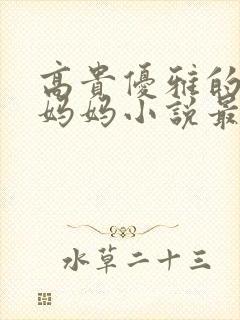 高貴優雅的
妈妈小說最
水草二十三